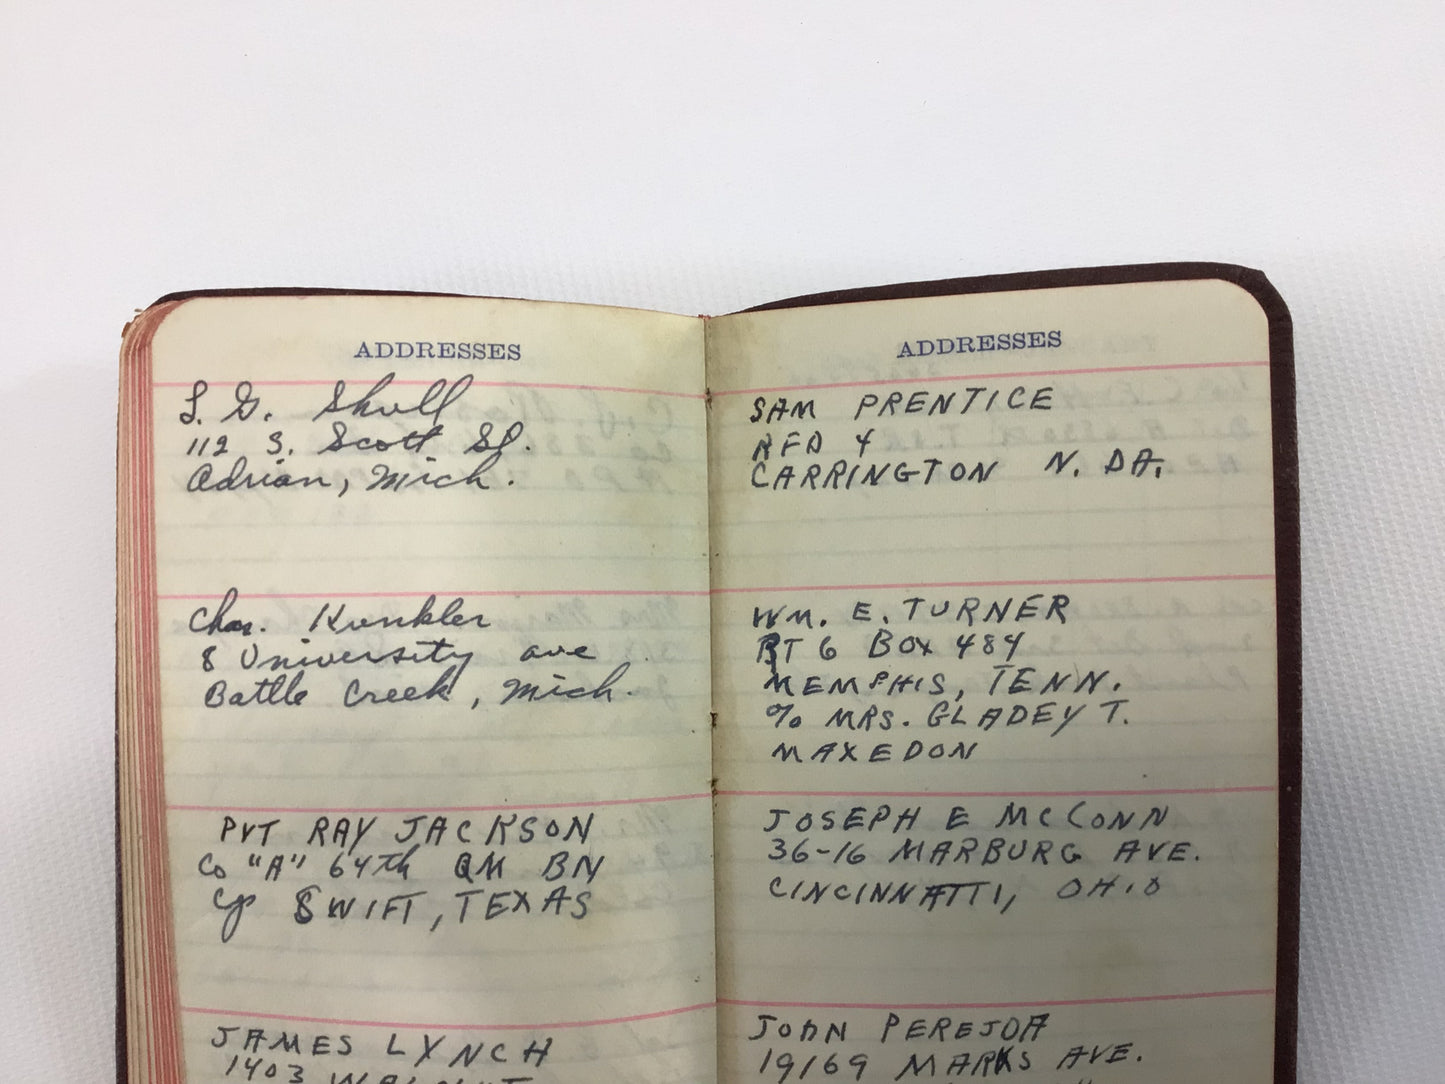 ADDRESSES
L. G. Shull
112 S. Scott St.
Adrian, Mich.
Chas. Kunkler
8 University ave
Battle Creek, Mich.
PVT RAY JACKSON
Co "A" 64th QM BN
Cp SWIFT, TEXAS
JAMES LYNCH
1403 WALNUT
ADDRESSES
SAM PRENTICE
RFD 4
CARRINGTON N. DA.
WM. E. TURNER
RT 6 BOX 484
MEMPHIS, TENN.
% MRS. GLADEY T.
MAXEDON
JOSEPH E MCCONN
36-16 MARBURG AVE.
CINCINNATTI, OHIO
JOHN PEREJDA
19169 MARKS AVE.